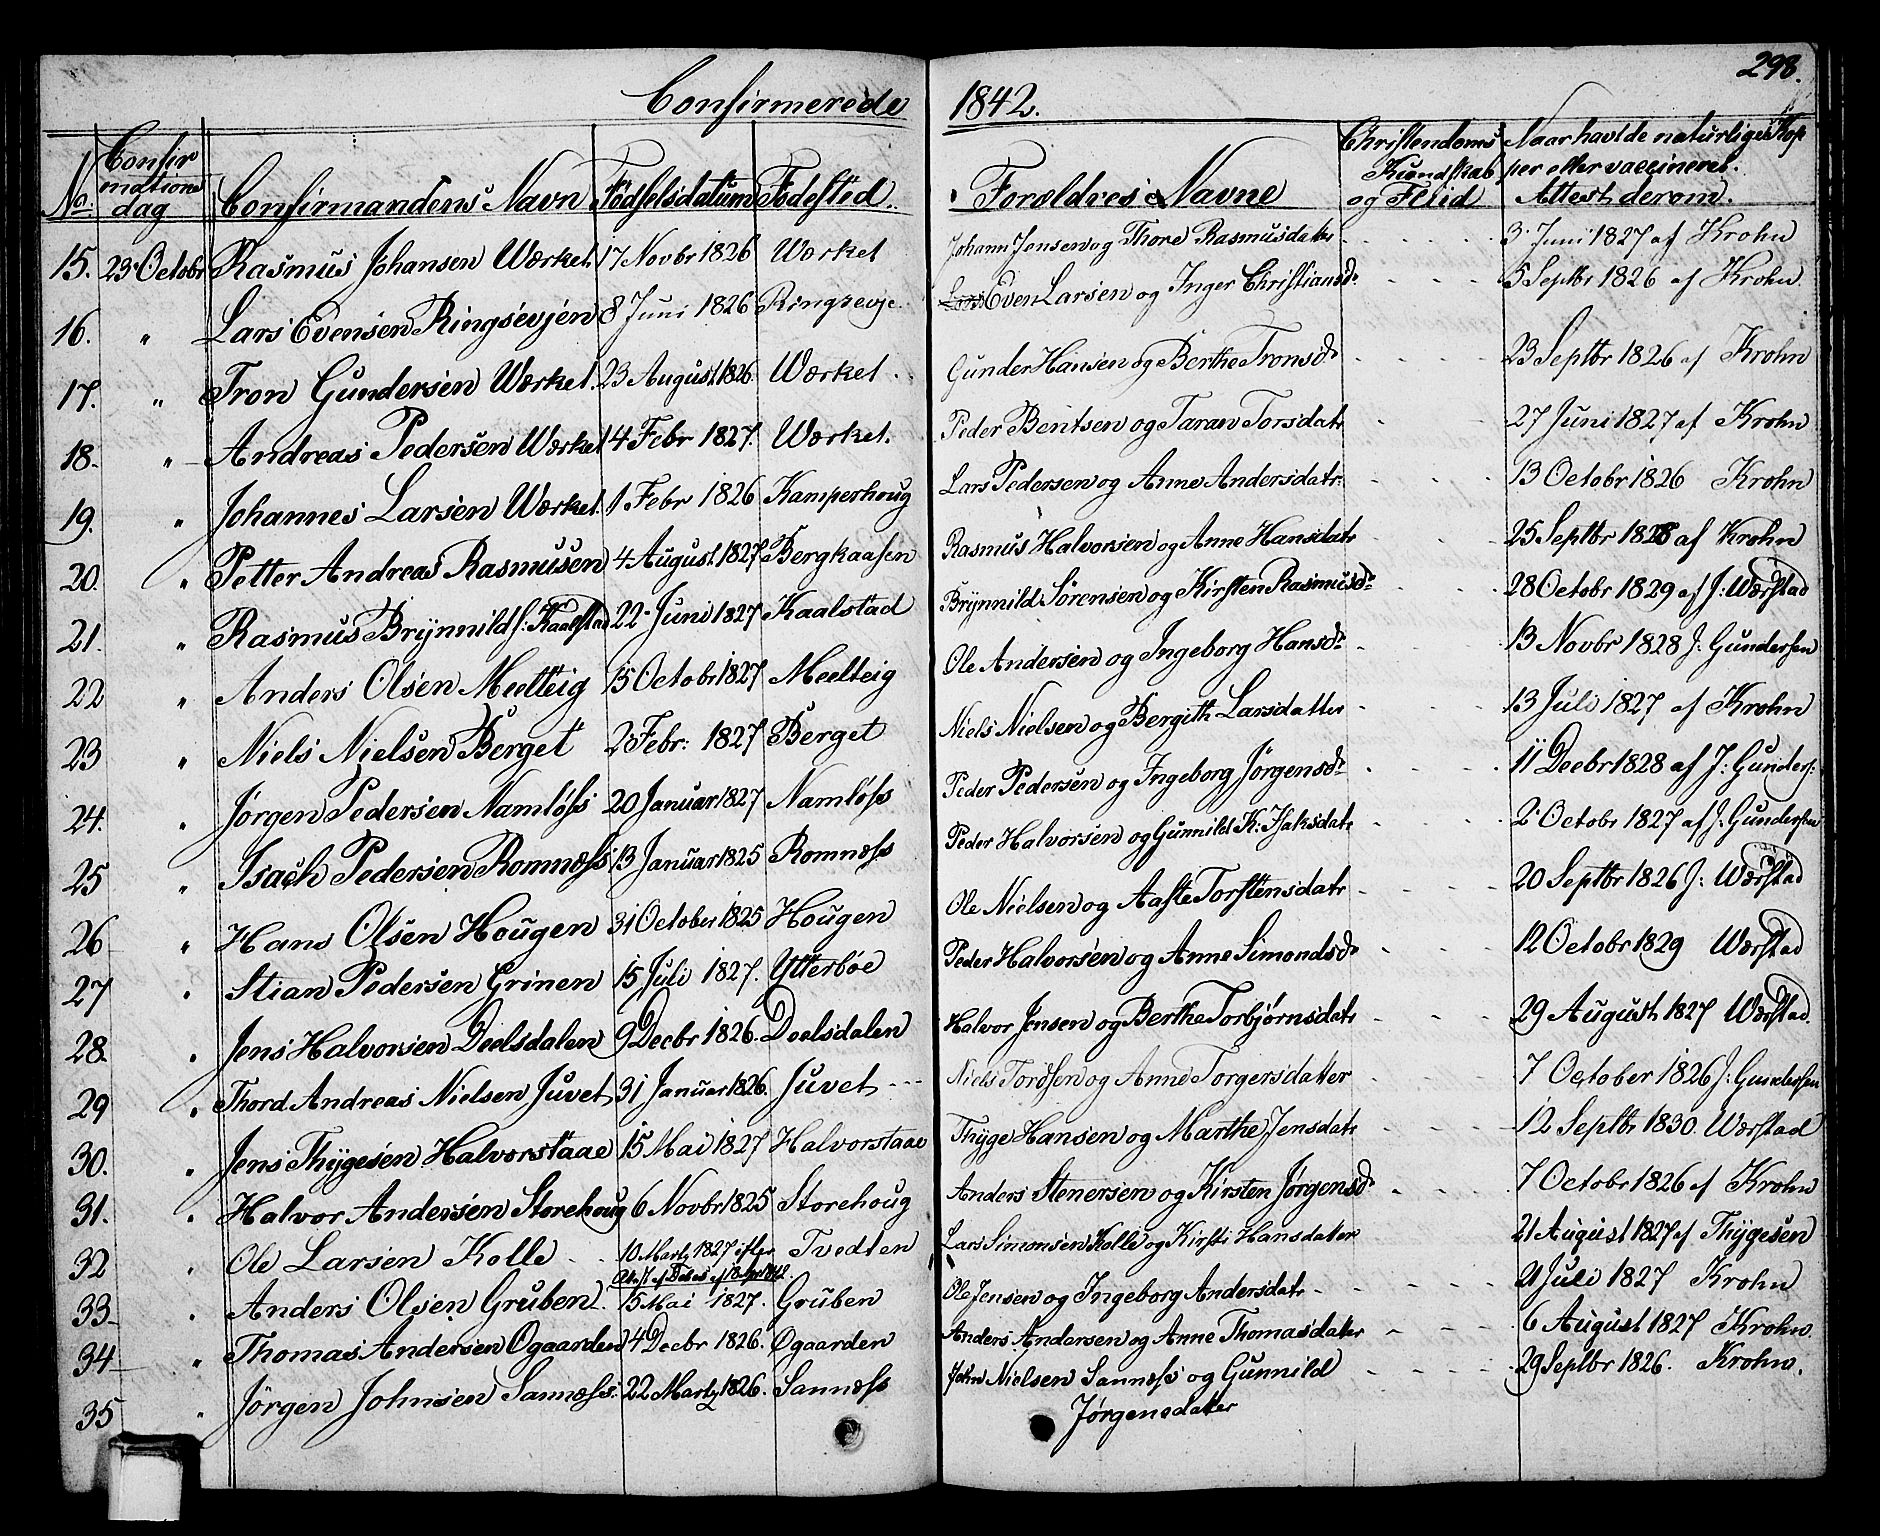 298.
Confirmerede 1842.
No. Confirmations dag Confirmandens Navn Fødselsdatum Fødested. Forældres Navne Christendoms Kundskab og Fliid Naar havt de naturlige Kopper eller vaccineret. Attest derom.
15. 23 Octobr Rasmus Johansen Wærket. 17 Novbr 1826 Wærket Johann Jensen og Thore Rasmusdater 3 Juni 1827 af Krohn
16. " Lars Evensen Ringsevjen 8 Juni 1826 Ringsevje. Even Larsen og Inger Christiansd. 5 Septbr 1826 af Krohn
17. " Tron Gundersen Wærket. 23 August 1826 Wærket. Gunder Hansen og Berthe Tronsdr 23 Septbr 1826 af Krohn
18. " Andreas Pedersen Wærket 4 Febr 1827. Wærket. Peder Bentsen og Taran Torsdatr 27 Juni 1827 af Krohn
19. " Johannes Larsen Wærket. 1 Febr 1826 Kamperhoug Lars Pedersen og Anne Andersdatr: 13 Octobr 1826 Krohn
20. " Petter Andreas Rasmusen 4 August 1827 Bergkaasen Rasmus Halvorsen og Anne Hansdatr 25 Septbr 1828 af Krohn
21. " Rasmus Brynnild S: Kaalstad 22 Juni 1827 Kaalstad Brynnild Sørensen og Kirsten Rasmusdr 28 Octobr 1829 af J: Wærstad
22 " Anders Olsen Meelteig 15 Octobr 1827 Meelteig Ole Andersen og Ingeborg Hansdr 13 Novbr 1828 J. Gundersen
23 " Niels Nielsen Berget 2 Febr: 1827 Berget Niels Nielsen og Bergith Larsdatter 13 Juli 1827 af Krohn
24. " Jørgen Pedersen Namløss 20 Januar 1827 Namløss Peder Pedersen og Ingeborg Jørgensdr 11 Decbr 1828 af J: Gunders:
25 " Isach Pedersen Romnæss 13 Januar 1825 Romnæss Peder Halvorsen og Gunnild K: Isaksdatr 2 Octobr 1827 af J: Gundersen
26 " Hans Olsen Hougen 31 October 1825 Hougen Ole Nielsen og Aaste Torstensdatr 20 Septbr 1826 J: Wærstad
27 " Stian Pedersen Grinen 15 Juli 1827. Ytterbøe Peder Halvorsen og Anne Simondsdr 12 Octobr 1829 Wærstad
28. " Jens Halvorsen Deelsdalen 9 Decbr 1826. Deelsdalen Halvor Jensen og Berthe Torbjørnsdatr 29 August 1827 Wærstad.
29 " Thord Andreas Nielsen Juvet 31 Januar 1826. Juvet Niels Tordsen og Anne Torgersdatter 7 October 1826 J: Gundersen
30. " Jens Thygesen Halvorstaae 15 Mai 1827 Halvorstaae Thyge Hansen og Marthe Jensdatr 12 Septbr 1830. Wærstad
31. " Halvor Andersen Storehoug 6 Novbr 1825 Storehoug Anders Stenersen og Kirsten Jørgensdr 7 Octobr 1826 af Krohn
32 " Ole Larsen Kolle 10 Martz 1827 ifter Attest af Tvedten Lars Simonsen Kolle og Kirsti Hansdater 21 August 1827 af Thygesen
33 " Anders Olsen Gruben. 15 Mai 1827. Gruben Ole Jensen og Ingeborg Andersdatr Juli 1827 Krohn
34 " Thomas Andersen Ogaarden 24 Decbr 1826. Ogaarden Anders Andersen og Anne Thomasdater 6 August 1827 Krohn.
35 " Jørgen Johnsen Sannæss: 22 Martz 1826. Sannæss John Nielsen Sannæss og Gunnild 29 Septbr 1826. Krohn.
Jørgensdatter